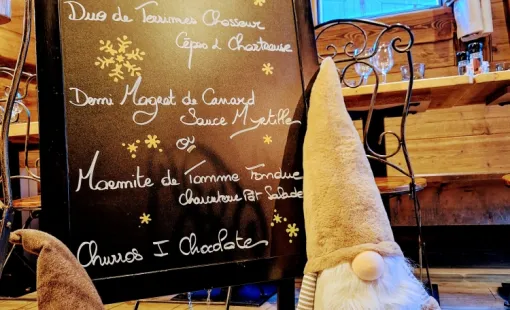 Duo de Terrines Chasseur
Cèpes & Chartreuse
Demi Magret de Canard
Sauce Myrtille
or
Marmite de Tomme Fondue
Charcuterie Pdt Salade
Churros I Chocolate